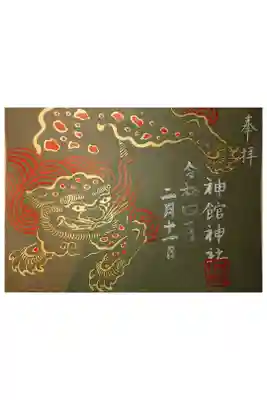 奉拝
神館神社
令和四年
二月十一日